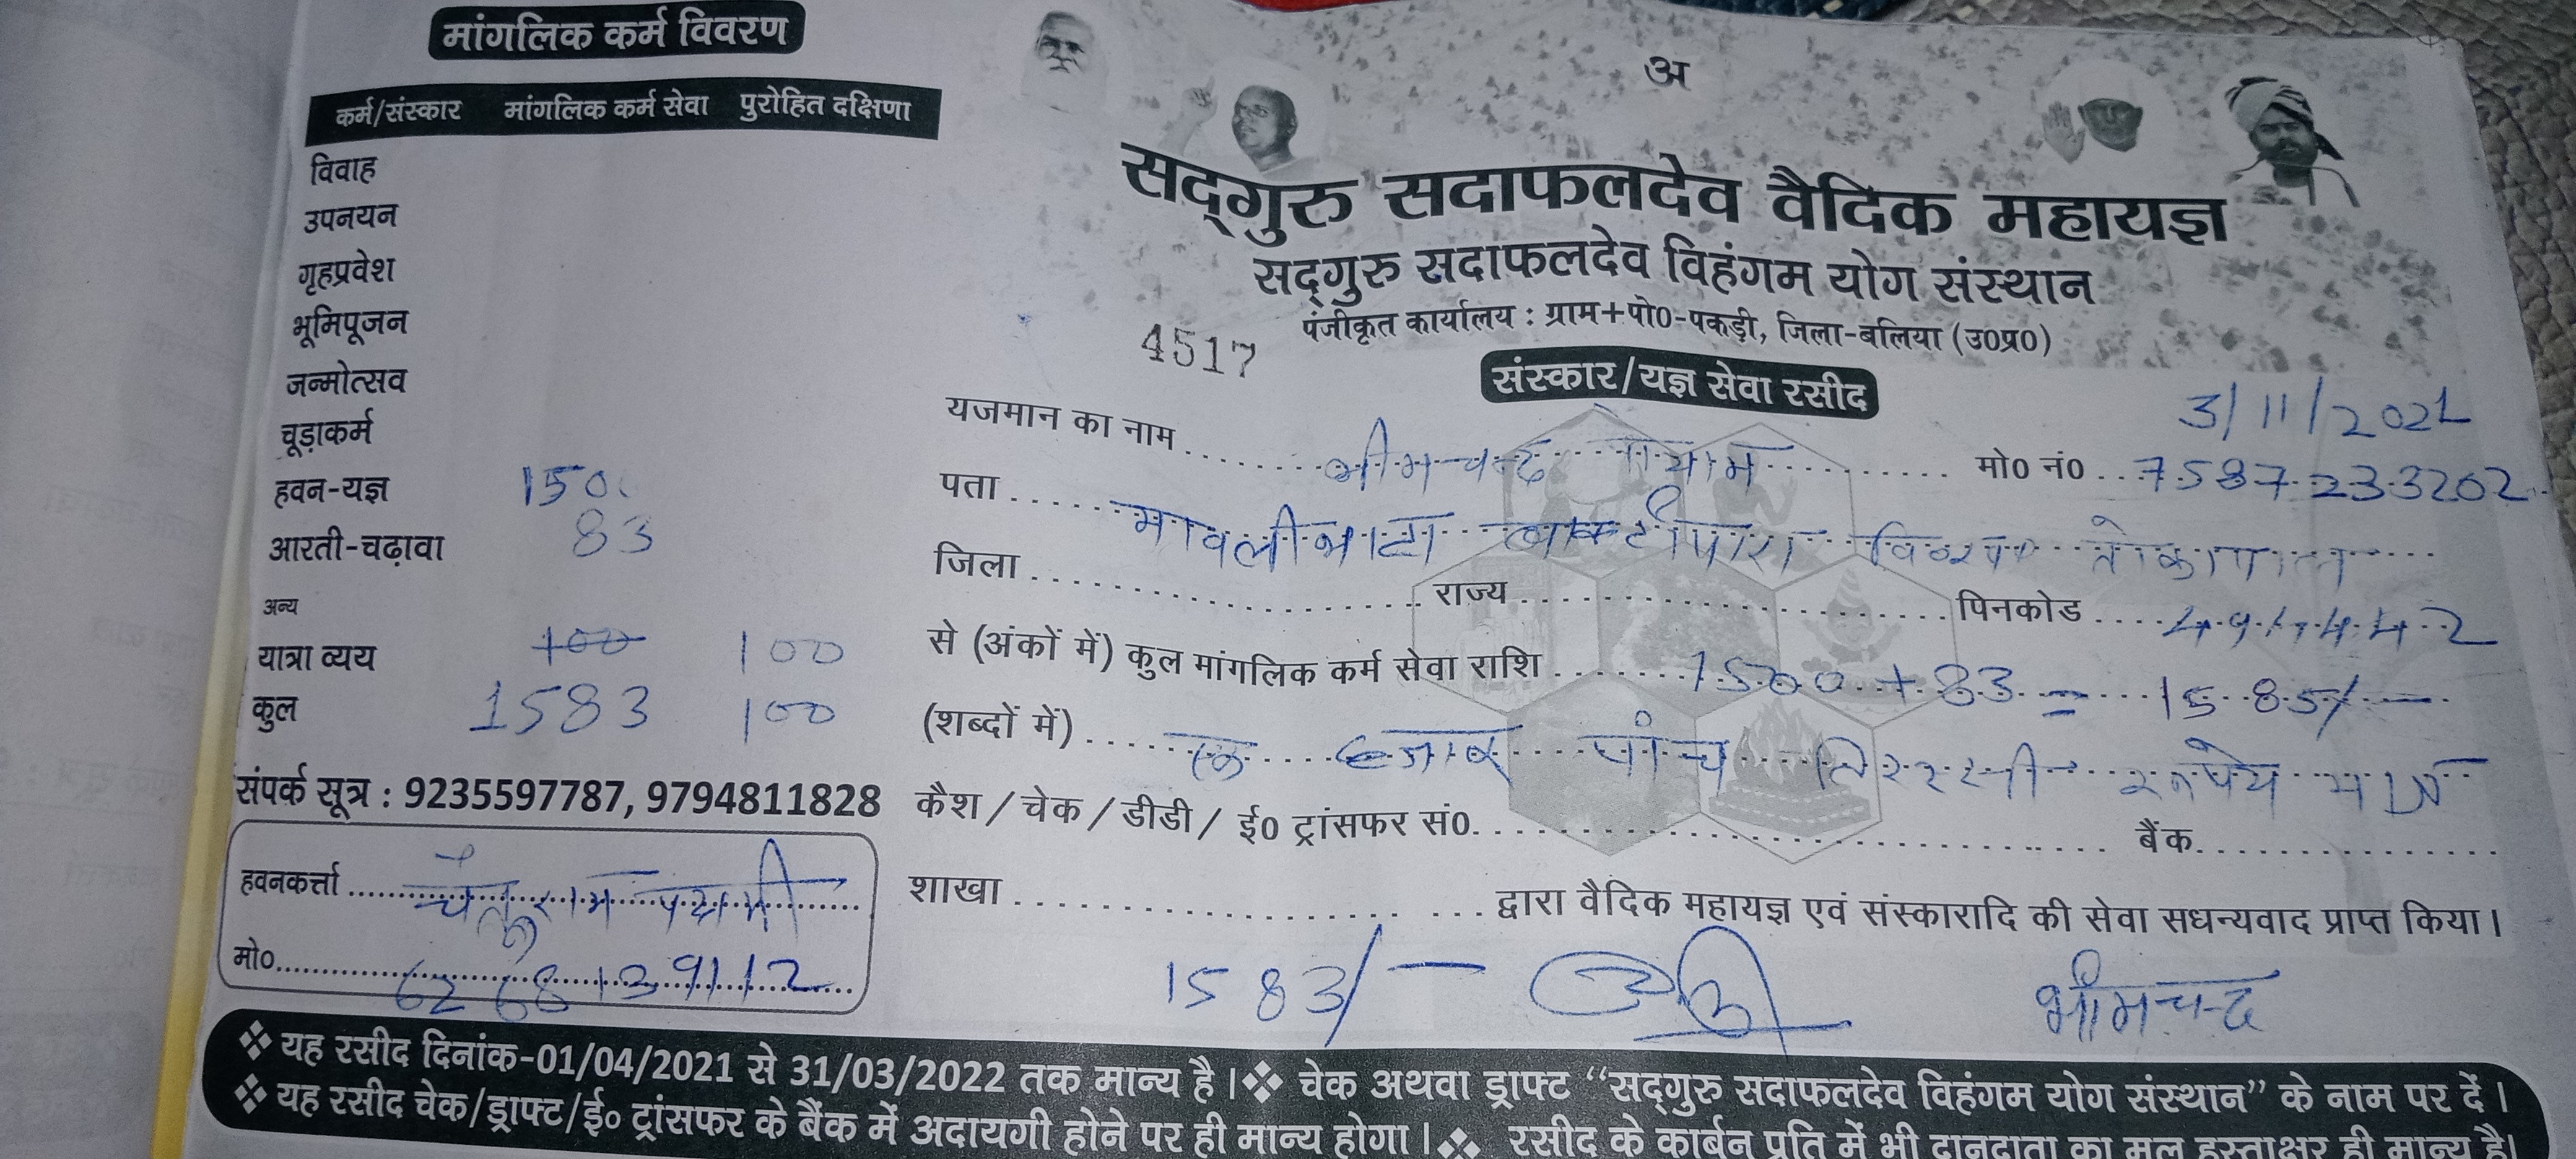 मांगलिक कर्म विवरण
कर्म/संस्कार मांगलिक कर्म सेवा पुरोहित दक्षिणा
विवाह
उपनयन
गृहप्रवेश
भूमिपूजन
जन्मोत्सव
चूड़ाकर्म
हवन-यज्ञ 150
आरती-चढ़ावा 83
अन्य
यात्रा व्यय 100 100
कुल 1583 100
संपर्क सूत्र : 9235597787, 9794811828
हवनकर्त्ता
मो० 6268139112
अ
सद्‌गुरु सदाफलदेव वैदिक महायज्ञ
सद्‌गुरु सदाफलदेव विहंगम योग संस्थान
पंजीकृत कार्यालय : ग्राम+पो0-पकड़ी, जिला-बलिया (उ0प्र0)
4517
संस्कार/यज्ञ सेवा रसीद
3/11/2021
यजमान का नाम भीमचन्द मो0 नं0 7587233202
पता मावलीभाटा तोकापाल
जिला राज्य पिनकोड 491442
से (अंकों में) कुल मांगलिक कर्म सेवा राशि 1500 + 83 = 1585/-
(शब्दों में) एक हजार पांच रुपये मात्र
कैश / चेक / डीडी / ई0 ट्रांसफर सं0. बैंक
शाखा द्वारा वैदिक महायज्ञ एवं संस्कारादि की सेवा सधन्यवाद प्राप्त किया।
1583/- भीमचन्द
❖ यह रसीद दिनांक-01/04/2021 से 31/03/2022 तक मान्य है।❖ चेक अथवा ड्राफ्ट “सद्‌गुरु सदाफलदेव विहंगम योग संस्थान” के नाम पर दें।
❖ यह रसीद चेक/ड्राफ्ट/ई० ट्रांसफर के बैंक में अदायगी होने पर ही मान्य होगा।❖ रसीद के कार्बन प्रति में भी दानदाता का मूल हस्ताक्षर ही मान्य है।